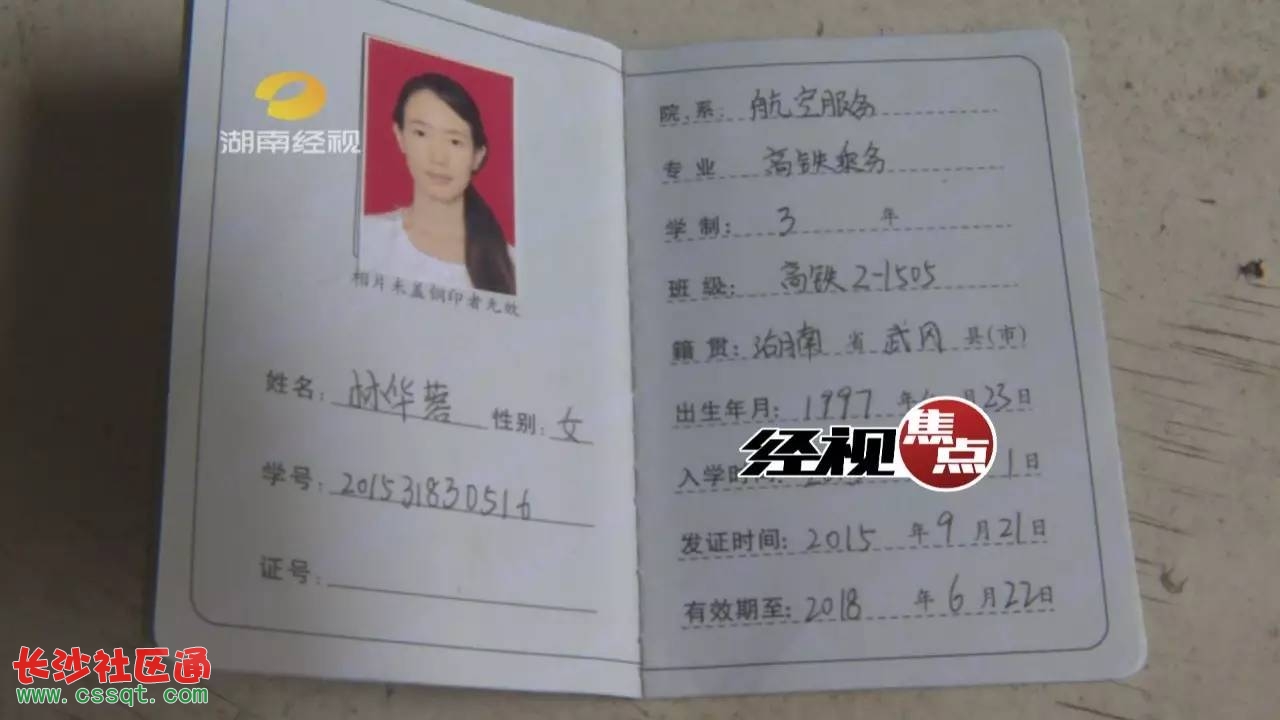 湖南经视
相片未盖钢印者无效
姓名: 林华蓉 性别: 女
学号: 201531830516
证号:
院.系: 航空服务
专业 高铁乘务
学制: 3 年
班级: 高铁2-1505
籍贯: 湖南 省 武冈 县(市)
出生年月: 1997 年 月 23日
经视 焦点
入学时间: 1日
发证时间: 2015 年 9 月 21日
有效期至: 2018 年 6 月 22日
长沙社区通
www.cssqt.com